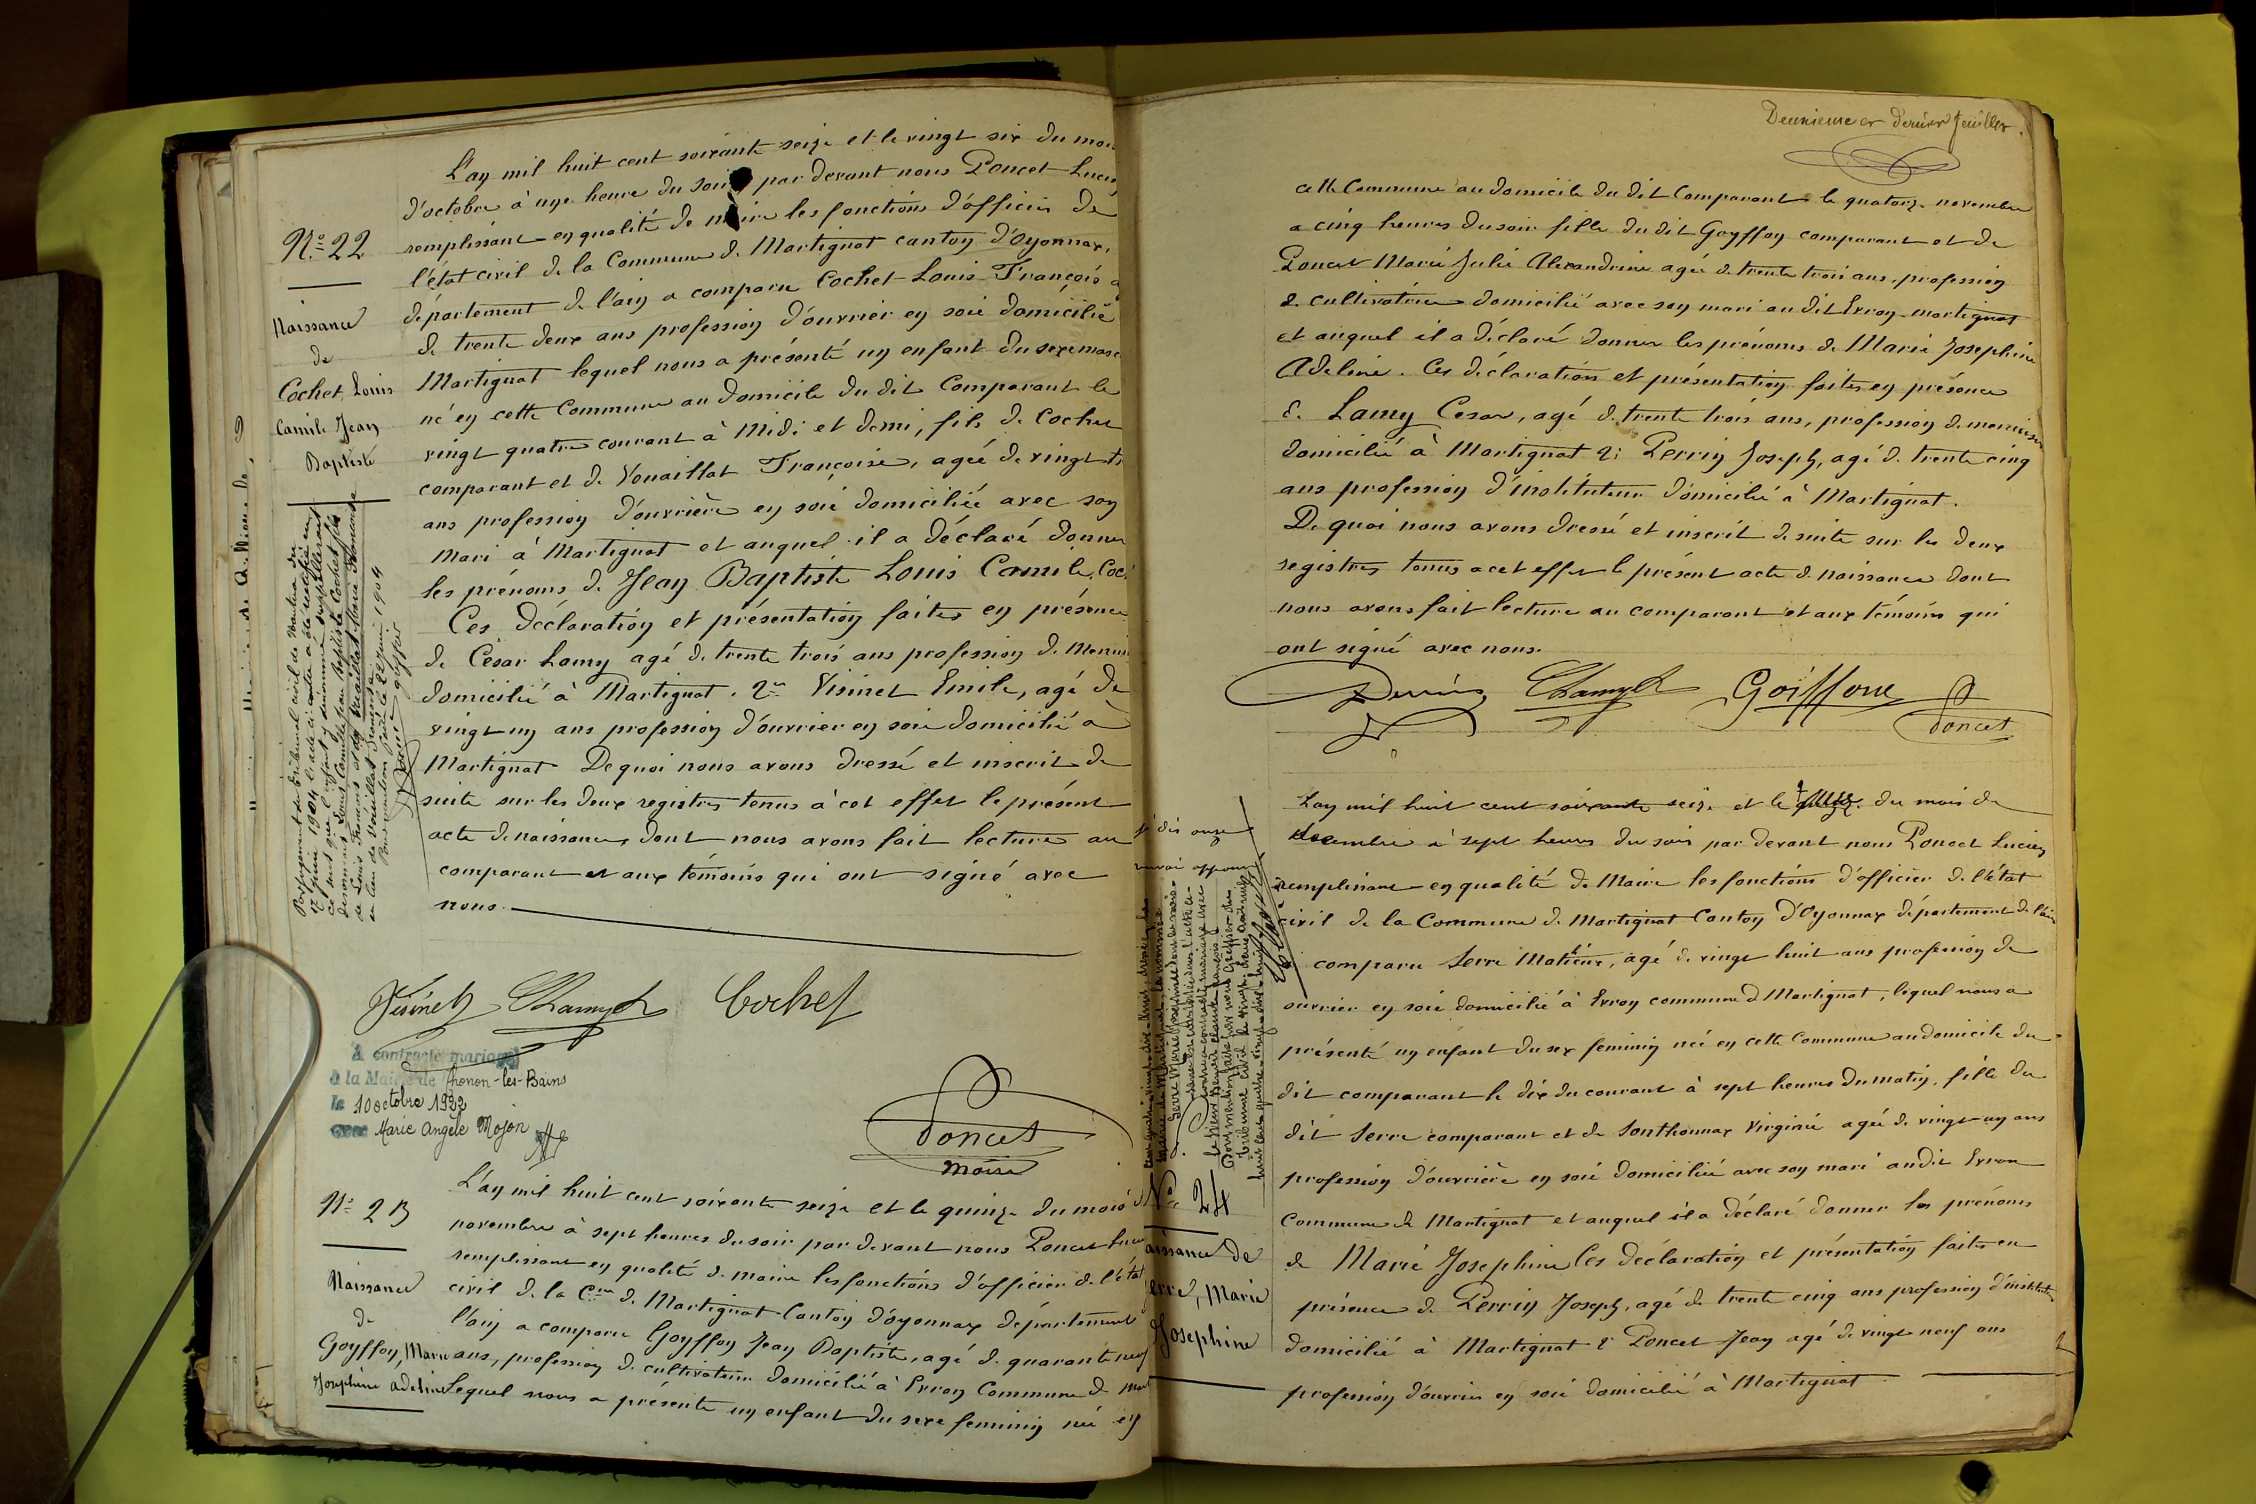 L'an mil huit cent soixante seize et le vingt six du mois
d'octobre à une heure du soir par devant nous Poncet Lucien
remplissant en qualité de maire les fonctions d'officier de
l'état civil de la Commune de Martignat canton d'Oyonnax,
département de l'ain a comparu Cochet Louis François a
de trente deux ans profession d'ouvrier en soie domicilié
Martignat lequel nous a présenté un enfant du sexe masc
né en cette Commune au domicile du dit Comparant le
vingt quatre courant à Midi et demi, fils de Cochet
comparant et de Vouaillat Françoise, agée de vingt t
ans profession d'ouvrière en soie domiciliée avec son
mari à Martignat et auquel il a déclaré donner
les prénoms de Jean Baptiste Louis Camile. Coc
Ces déclaration et présentation faites en présence
de César Lamy agé de trente trois ans profession de Menui
domicilié à Martignat. 2º Visinet Emile, agé de
vingt un ans profession d'ouvrier en soie domicilié à
Martignat De quoi nous avons dressé et inscrit de
suite sur les deux registres tenus à cet effet le présent
acte de naissance, dont nous avons fait lecture au
comparant et aux témoins qui ont signé avec
nous.
Nº 22
Naissance
de
Cochet, Louis
Camile Jean
Baptiste
Par jugement du tribunal civil de Nantua du
17 juin 1904 l'acte ci contre a été rectifié en
ce sens que l'enfant y dénommé s'appellerait
désormais Louis Camille Jean Baptiste Cochet fils
de Louis François et de Vuaillat Marie Françoise
au lieu de Vouaillat Françoise
Pour mention faite le 22 juin 1904
Visinet Lamy C Cochet
Poncet
maire
A contracté mariage
à la Mairie de Thonon-les-Bains
le 10 octobre 1922
avec Marie Angèle Mojon
Nº 23
Naissance
de
Goyffon, Marie
Josephine adeline
L'an mil huit cent soixante seize et le quinze du mois d
novembre à sept heures du soir par devant nous Poncet Lucien
remplissant en qualité de maire les fonctions d'officier de l'état
civil de la Cne de Martignat Canton d'Oyonnax département
l'ain a comparu Goyffon Jean Baptiste, agé de quarante neuf
ans, profession de cultivateur domicilié à Evron Commune de Mart
Lequel nous a présenté un enfant du sexe feminin né en
Deuxieme et dernier feuillet.
cette Commune au domicile du dit Comparant le quatorze novembre
a cinq heures du soir fille du dit Goyffon comparant et de
Poncet Marie Julie Alexandrine agée de trente trois ans, profession
de cultivatrice domicilié avec son mari au dit Evron-martignat
et auquel il a déclaré donner les prénoms de Marie Josephine
Adeline. Ces déclaration et présentation faites en présence
de Lamy Cesar, agé de trente trois ans, profession de menuisier
domicilié à Martignat 2º Perrin Joseph, agé de trente cinq
ans profession d'instituteur domicilié à Martignat.
De quoi nous avons dressé et inscrit de suite sur les deux
registres tenus a cet effet le présent acte de naissance dont
nous avons fait lecture au comparant et aux témoins qui
ont signé avec nous.
Perrin Lamy C Goiffone Poncet
L'an mil huit cent soixante seize et le du mois de
decembre à sept heures du soir par devant nous Poncet Lucien
remplissant en qualité de Maire les fonctions d'officier de l'état
civil de la Commune de Martignat Canton d'Oyonnax département de l'ain
comparu Serre Mathieu, agé de vingt huit ans profession de
ouvrier en soie domicilié à Evron commune de Martignat, lequel nous a
présenté un enfant du sex feminin née en cette Commune au domicile du
dit comparant le dix du courant à sept heures du matin, fille du
dit Serre comparant et de Sonthonnax Virginie agée de vingt un ans
profession d'ouvrière en soie domiciliée avec son mari audit Evron
Commune de Martignat et auquel il a déclaré donner les prénoms
de Marie Josephine Ces déclaration et présentation faites en
présence de Perrin Joseph, agé de trente cinq ans profession d'instituteur
domicilié à Martignat 2º Poncet Jean agé de vingt neuf ans
profession d'ouvrier en soie domicilié à Martignat.
dis onze
Nº 24
aissance de
erre, Marie
Josephine